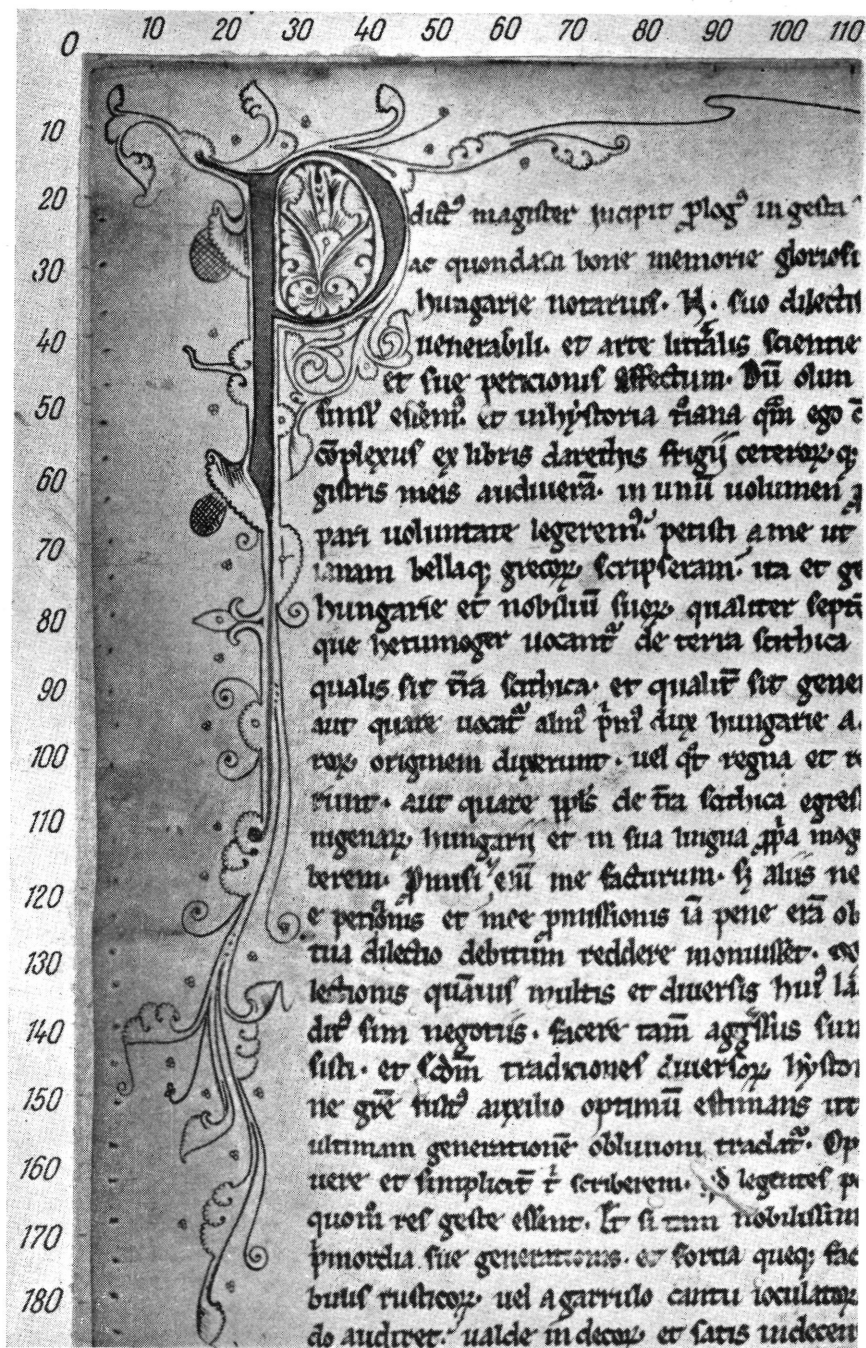 0 10 20 30 40 50 60 70 80 90 100 110
10
20
30
40
50
60
70
80
90
100
110
120
130
140
150
160
170
180
P dictꝰ magister incipit ꝓlogꝰ in gesta
ac quondam bone memorie gloriosi
hungarie notarius. N. suo dilecti
uenerabili. et arte litt̃alis scientie
et sue peticionis effectum. Dũ olim
simł essemꝰ. et in hystoria t̃iana qͣm ego c̃
cõplexus ex libris darethis frigij ceteroꝝ q;
gistris meis audiuerã. in unũ uolumen ꝓ
pari uoluntate legeremꝰ. petisti a me ut
ianam bellaq; grecoꝝ scripseram. ita et ge
hungarie et nobiliũ suoꝝ. qualiter septẽ
que hetumoger uocantᷣ de terra scithica
qualis sit t̃ra scithica. et qualit̃ sit gene
aut quare uocatᷣ almꝰ p̃mꝰ dux hungarie a
roꝝ originem duxerunt. uel qͦt regna et re
runt. aut quare ppl̃s de t̃ra scithica egres
nigenaꝝ hungarij et in sua lingua ꝓp̃a mog
berem. Promisi eni᷑ me facturum. sꝫ aliis ne
e peticionis et mee ꝓmissionis iã pene erã ob
tua dilectio debitum reddere monuisset.
lectionis quãuis multis et diuersis huiꝰ la
ditꝰ sim negotiis. facere tam̃ aggssus sum
sisti. et scd̃m tradiciones diuersoꝝ hysto
ne gr̃e fultꝰ auxilio optimũ estimans ut
ultimam generationẽ obliuioni tradatᷣ. Op
uere et simplicit̃ t scriberem. qͦd legentes po
quom̃ res geste essent. Et si tam nobilissim
p̃mordia sue generationis. et fortia queq; fac
bulis rusticoꝝ. uel a garrulo cantu ioculatoꝝ
do audiret. ualde indecoꝝ et satis indecen